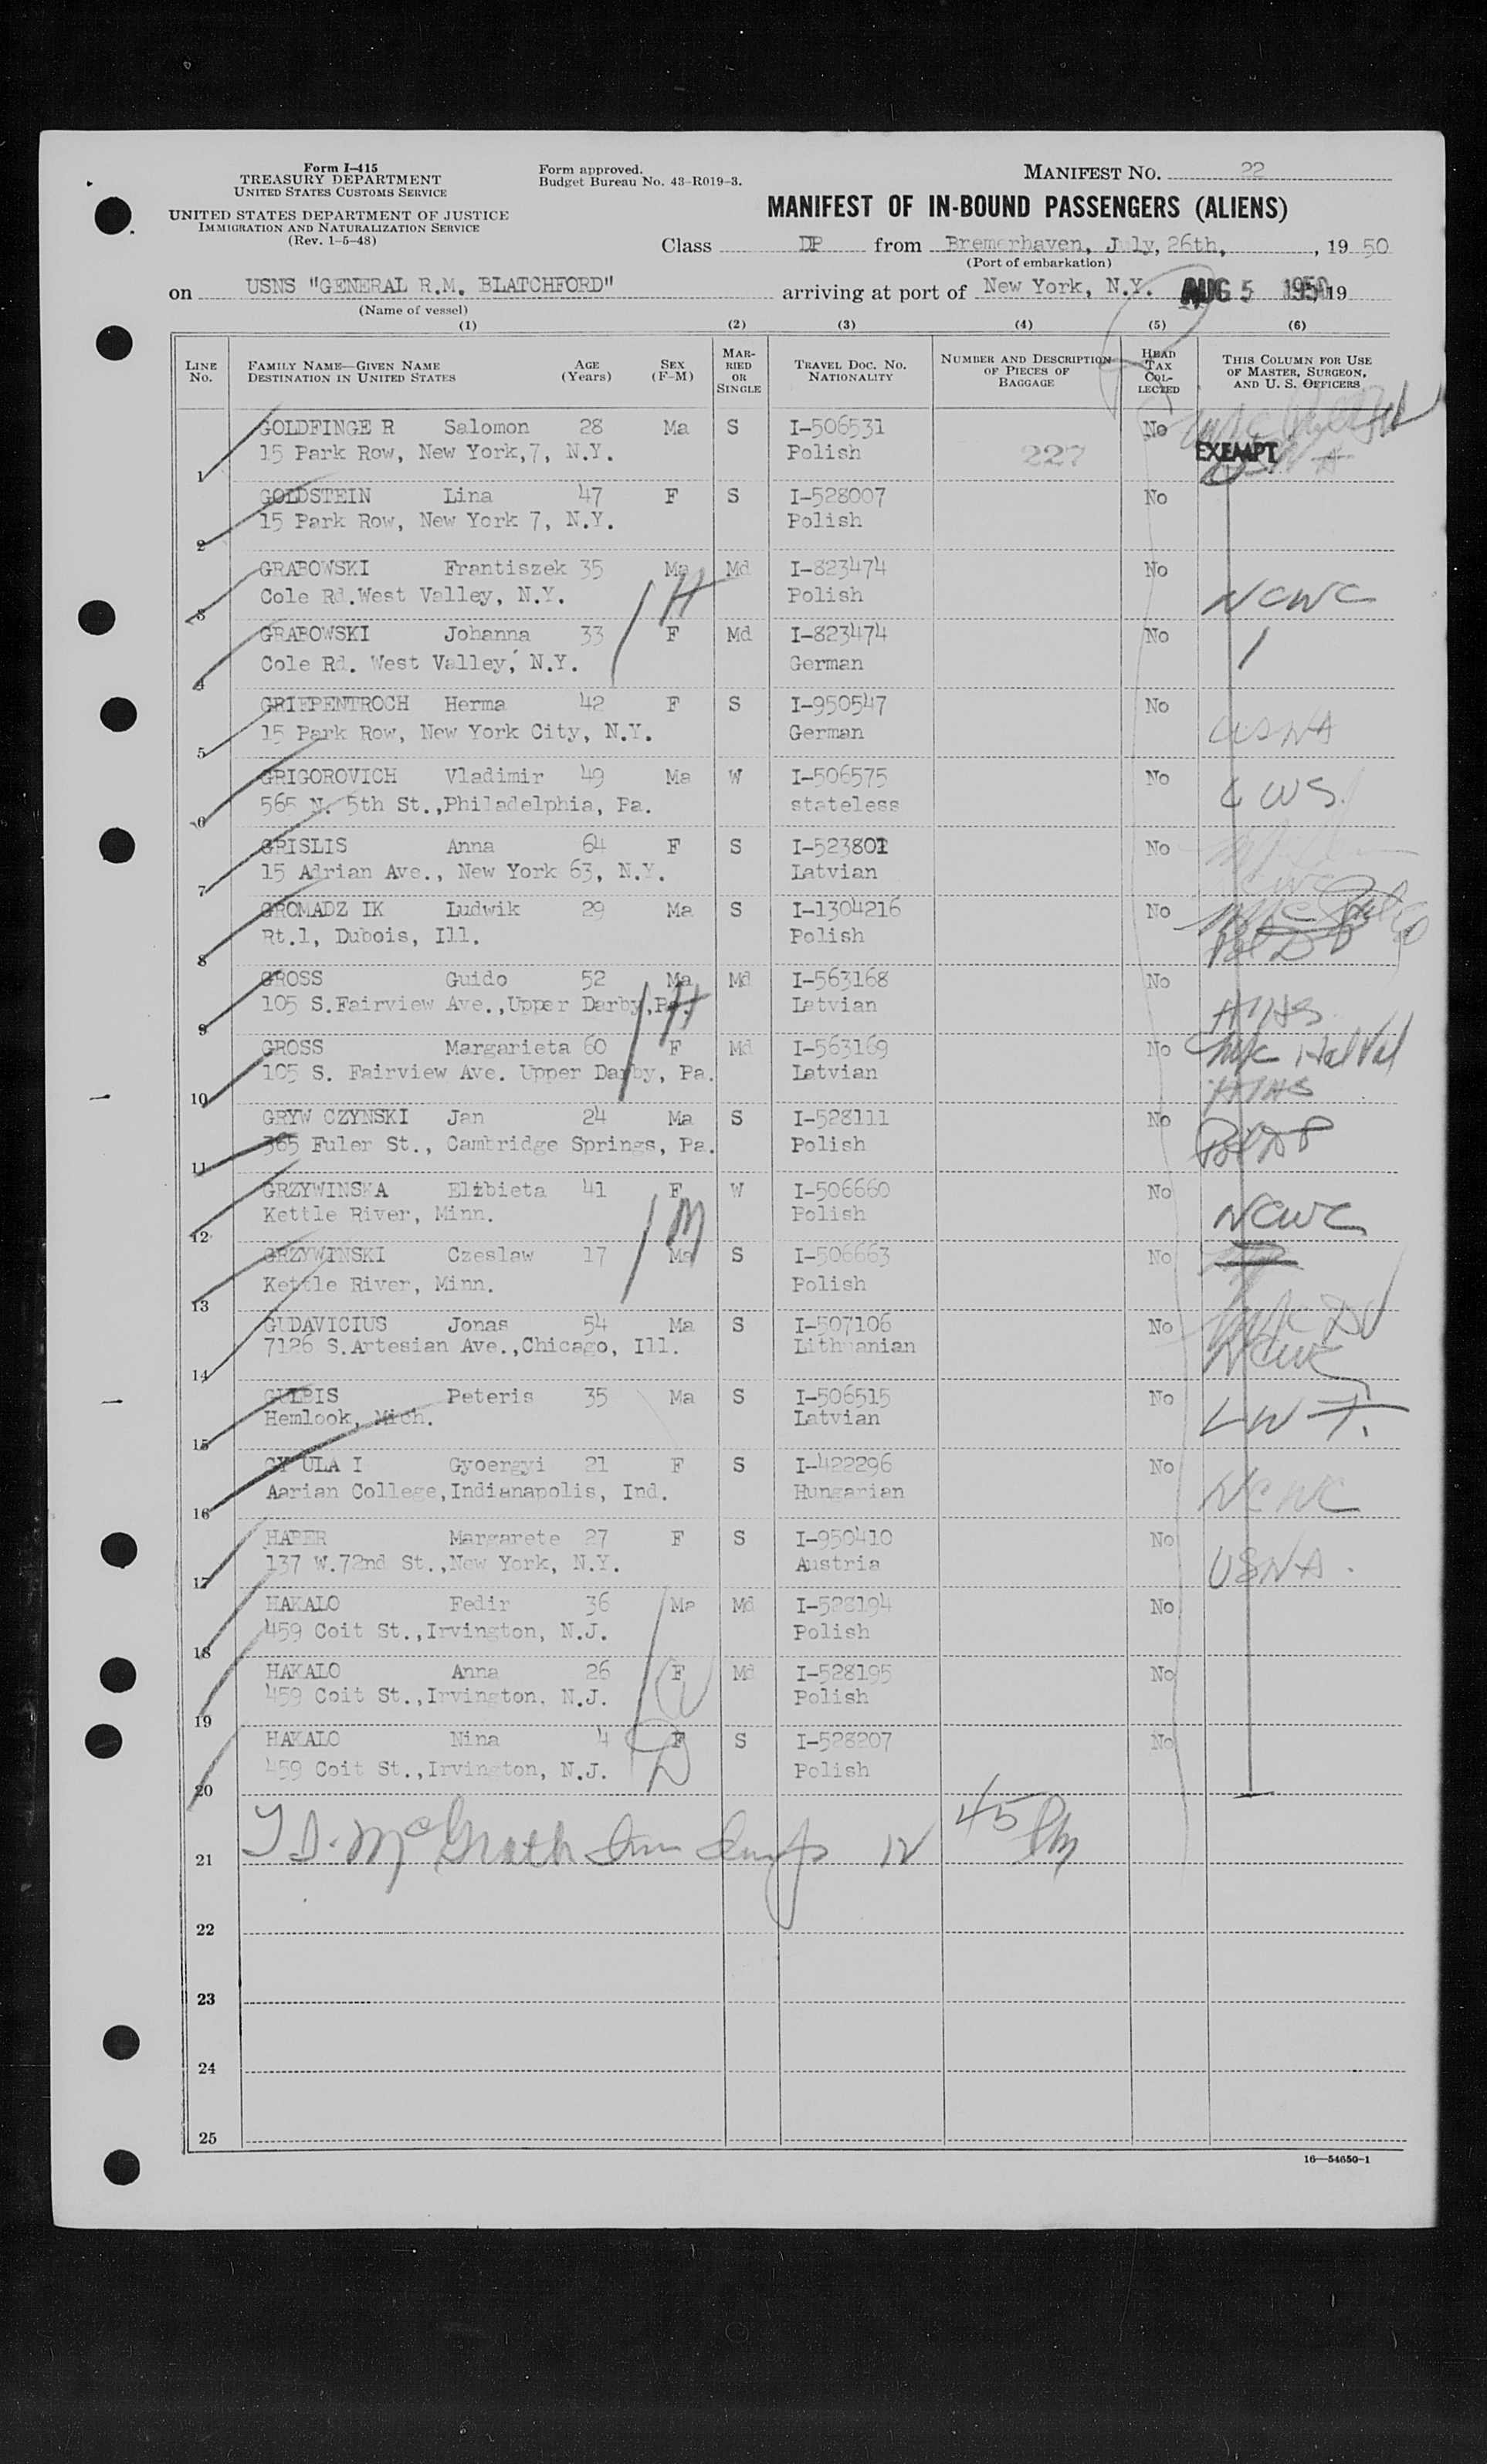 Form I-415
TREASURY DEPARTMENT
UNITED STATES CUSTOMS SERVICE
UNITED STATES DEPARTMENT OF JUSTICE
IMMIGRATION AND NATURALIZATION SERVICE
(Rev. 1-5-48)
Form approved.
Budget Bureau No. 43-R019-3.
MANIFEST NO. 22
MANIFEST OF IN-BOUND PASSENGERS (ALIENS)
Class DP from Bremerhaven, July, 26th, , 19 50
(Port of embarkation)
on USNS "GENERAL R.M. BLATCHFORD" arriving at port of New York, N.Y. AUG 5 1950 19
(Name of vessel)
(1) (2) (3) (4) (5) (6)
LINE No. FAMILY NAME—GIVEN NAME DESTINATION IN UNITED STATES AGE (Years) SEX (F-M) MARRIED OR SINGLE TRAVEL DOC. NO. NATIONALITY NUMBER AND DESCRIPTION OF PIECES OF BAGGAGE HEAD TAX COLLECTED THIS COLUMN FOR USE OF MASTER, SURGEON, AND U. S. OFFICERS
GOLDFINGE R Salomon 28 Ma S I-506531 No
1 15 Park Row, New York,7, N.Y. Polish 227 EXEMPT
GOLDSTEIN Lina 47 F S I-528007 No
2 15 Park Row, New York 7, N.Y. Polish
GRABOWSKI Frantiszek 35 Ma Md I-823474 No
3 Cole Rd.West Valley, N.Y. Polish NCWC
GRABOWSKI Johanna 33 F Md I-823474 No
4 Cole Rd. West Valley, N.Y. German
GRIEPENTROCH Herma 42 F S I-950547 No
5 15 Park Row, New York City, N.Y. German USNA
GRIGOROVICH Vladimir 49 Ma W I-506575 No
6 565 N. 5th St.,Philadelphia, Pa. stateless CWS.
GRISLIS Anna 64 F S I-523801 No
7 15 Adrian Ave., New York 63, N.Y. Latvian
GROMADZ IK Ludwik 29 Ma S I-1304216 No
8 Rt.1, Dubois, Ill. Polish
GROSS Guido 52 Ma Md I-563168 No
9 105 S.Fairview Ave.,Upper Darby,Pa. Latvian HIAS
GROSS Margarieta 60 F Md I-563169 No
10 105 S. Fairview Ave. Upper Darby, Pa. Latvian HIAS
GRYW CZYNSKI Jan 24 Ma S I-528111 No
11 365 Fuler St., Cambridge Springs, Pa. Polish
GRZYWINSKA Elzbieta 41 F W I-506660 No
12 Kettle River, Minn. Polish NCWC
GRZYWINSKI Czeslaw 17 Ma S I-506663 No
13 Kettle River, Minn. Polish
GUDAVICIUS Jonas 54 Ma S I-507106 No
14 7126 S.Artesian Ave.,Chicago, Ill. Lithuanian NCWC
GULBIS Peteris 35 Ma S I-506515 No
15 Hemlook, Mich. Latvian LWF.
GY ULA I Gyoergyi 21 F S I-422296 No
16 Aarian College,Indianapolis, Ind. Hungarian NCWC
HABER Margarete 27 F S I-950410 No
17 137 W.72nd St.,New York, N.Y. Austria USNA.
HAKALO Fedir 36 Ma Md I-528194 No
18 459 Coit St.,Irvington, N.J. Polish
HAKALO Anna 26 F Md I-528195 No
19 459 Coit St.,Irvington, N.J. Polish
HAKALO Nina 4 F S I-528207 No
20 459 Coit St.,Irvington, N.J. Polish
21 McGrath 12 45 Pm
22
23
24
25
16—54650-1